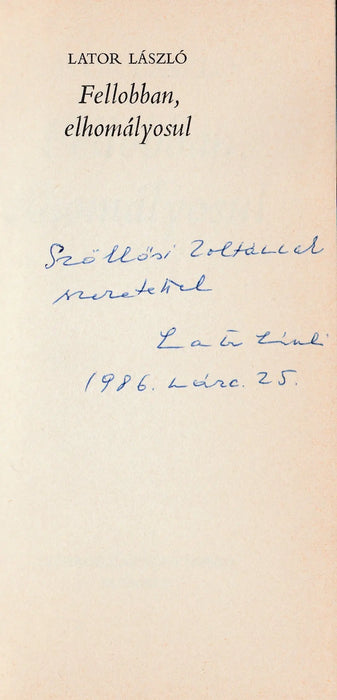 LATOR LÁSZLÓ
Fellobban,
elhomályosul
Szöllősi Zoltánnak
szeretettel
Lator Laci
1986. márc. 25.